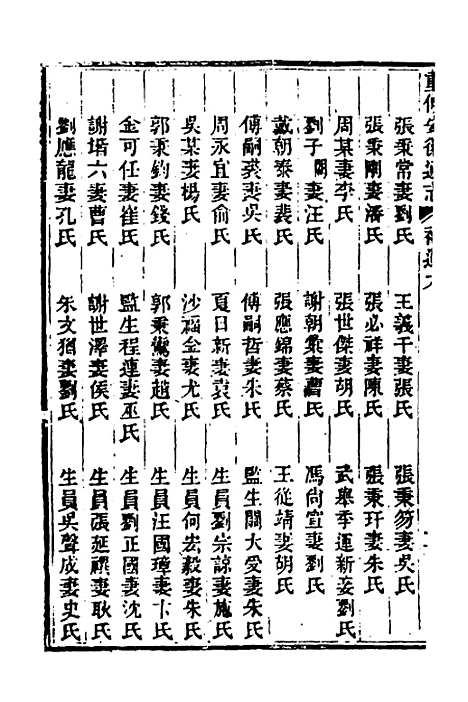 重修安徽通志 補遺
張秉常妻劉氏 王義千妻張氏 張秉笏妻吳氏
張秉剛妻潘氏 張必祥妻陳氏 張秉玕妻朱氏
周某妻李氏 張世傑妻胡氏 武舉季運新妾劉氏
劉子 妻汪氏 謝朝 妻曹氏 馮尙宜妻劉氏
戴朝泰妻裴氏 張應錦妻蔡氏 王從靖妻胡氏
傅嗣裘妻吳氏 傅嗣哲妻朱氏 監生關大受妻朱氏
周永宜妻俞氏 夏日新妻袁氏 生員劉宗諒妻施氏
吳某妻楊氏 沙福金妻尤氏 生員何宏毅妻朱氏
郭秉鈞妻錢氏 郭秉鸞妻趙氏 生員汪國璋妻卞氏
金可任妻崔氏 監生程蓮妻巫氏 生員劉正國妻沈氏
謝培六妻曹氏 謝世澤妻侯氏 生員張延禩妻耿氏
劉應龍妻孔氏 朱文猶妻劉氏 生員吳聲成妻史氏